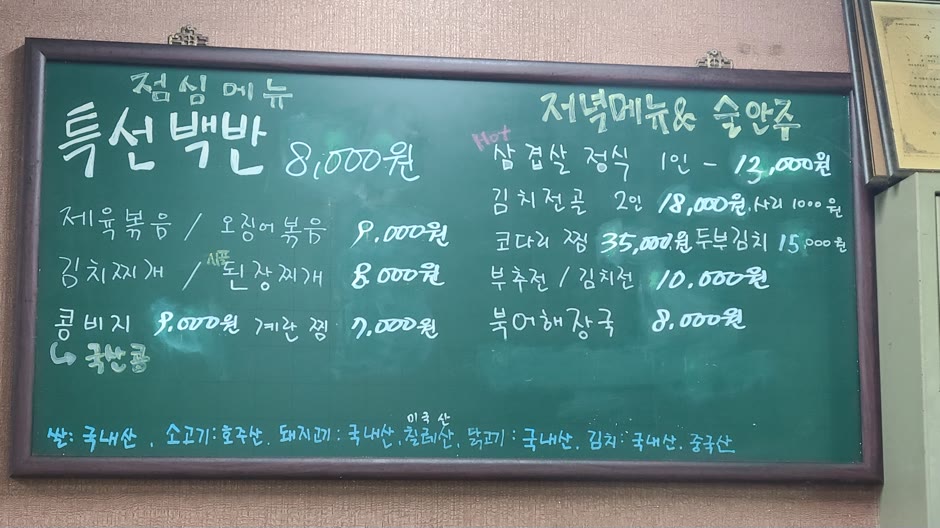 점심메뉴
특선백반 8,000원
제육볶음 / 오징어볶음 9,000원
김치찌개 / 시골 된장찌개 8,000원
콩비지 9,000원 계란찜 7,000원
↳ 국산콩
저녁메뉴& 술안주
Hot
삼겹살 정식 1인 - 13,000원
김치전골 2인 18,000원. 사리 1000원
코다리찜 35,000원 두부김치 15,000원
부추전 / 김치전 10,000원
북어해장국 8,000원
미국산
쌀: 국내산. 소고기: 호주산. 돼지고기: 국내산. 칠레산. 닭고기: 국내산. 김치: 국내산. 중국산